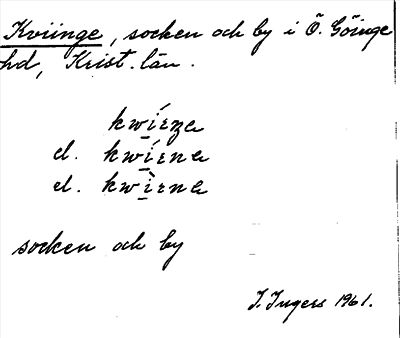 Kviinge, socken och by i Ö. Göinge
hd, Krist. län.
kwíŋɐ
el. kwínɐ
el. kwìnɐ
socken och by
I. Ingers 1961.